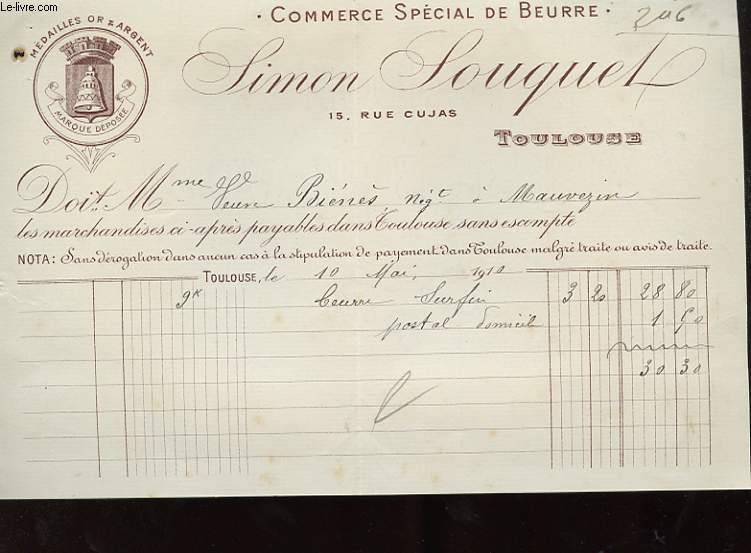 Le-livre.com
· COMMERCE SPÉCIAL DE BEURRE ·
206
MÉDAILLES OR & ARGENT
MARQUE DÉPOSÉE
Simon Souquet
15, RUE CUJAS
TOULOUSE
Doit M^me Veuve Biénès, Nég^t à Mauvezin
les marchandises ci-après payables dans Toulouse sans escompte
NOTA: Sans dérogation dans aucun cas à la stipulation de payement dans Toulouse malgré traite ou avis de traite.
TOULOUSE, le 10 Mai, 1910
9^K beurre Surfin 3 20 28 80
postal domicile 1 50
30 30